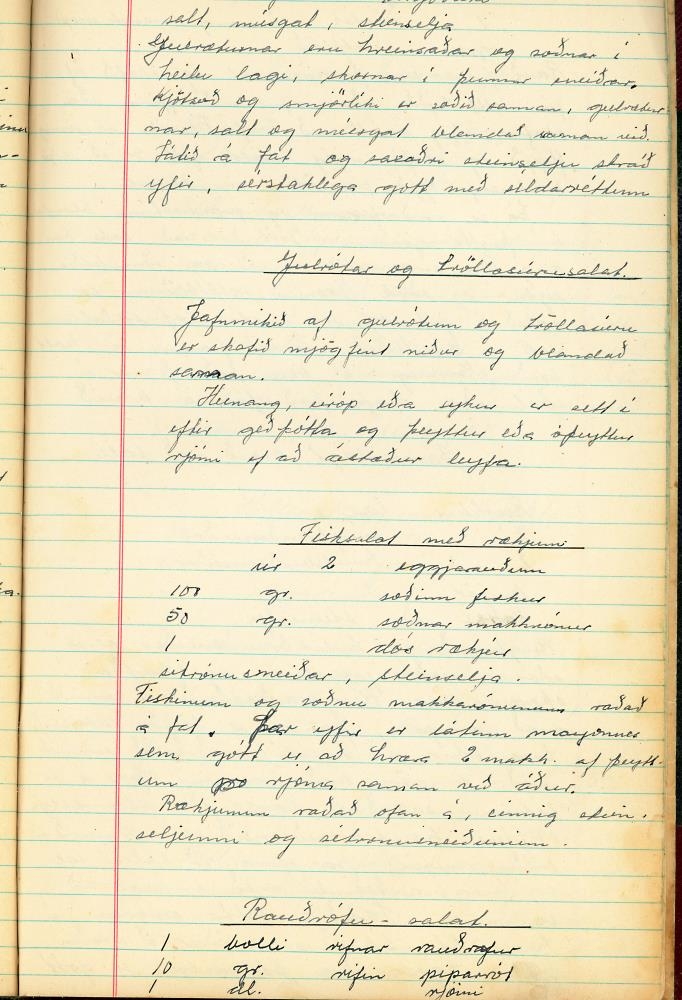 salt, músgat, steinselja
Gulræturnar eru hreinsaðar og soðnar í
heilu lagi, skornar í þunnar sneiðar.
Kjötsoð og smjörlíki er soðið saman, gulrætur-
nar, salt og músgat blandað saman við.
Látið á fat og saxaðri steinselju stráð
yfir, sérstaklega gott með síldarréttum
Gulrótar og tröllasúrusalat.
Jafnmikið af gulrótum og tröllasúru
er skafið mjög fínt niður og blandað
saman.
Hunang, síróp eða sykur er sett í
eftir geðþótta og þeyttur eða óþeyttur
rjómi ef að ástæður leyfa.
Fisksalat með rækjum
úr 2 eggjarauðum
100 gr. soðinn fiskur
50 gr. soðnar makkrónur
1 dós rækjur
sitrónusneiðar, steinselja.
Fiskinum og soðnu makkarónunum raðað
á fat. Þar yfir er látinn mayonnes
sem gott er að hræra 2 matk. af þeytt-
um rjóma saman við áður.
Rækjunum raðað ofan á, einnig stein-
seljunni og sítronusneiðunum.
Rauðrófu - salat.
1 bolli rifnar rauðrófur
10 gr. rifin piparrót
1 dl. rjómi